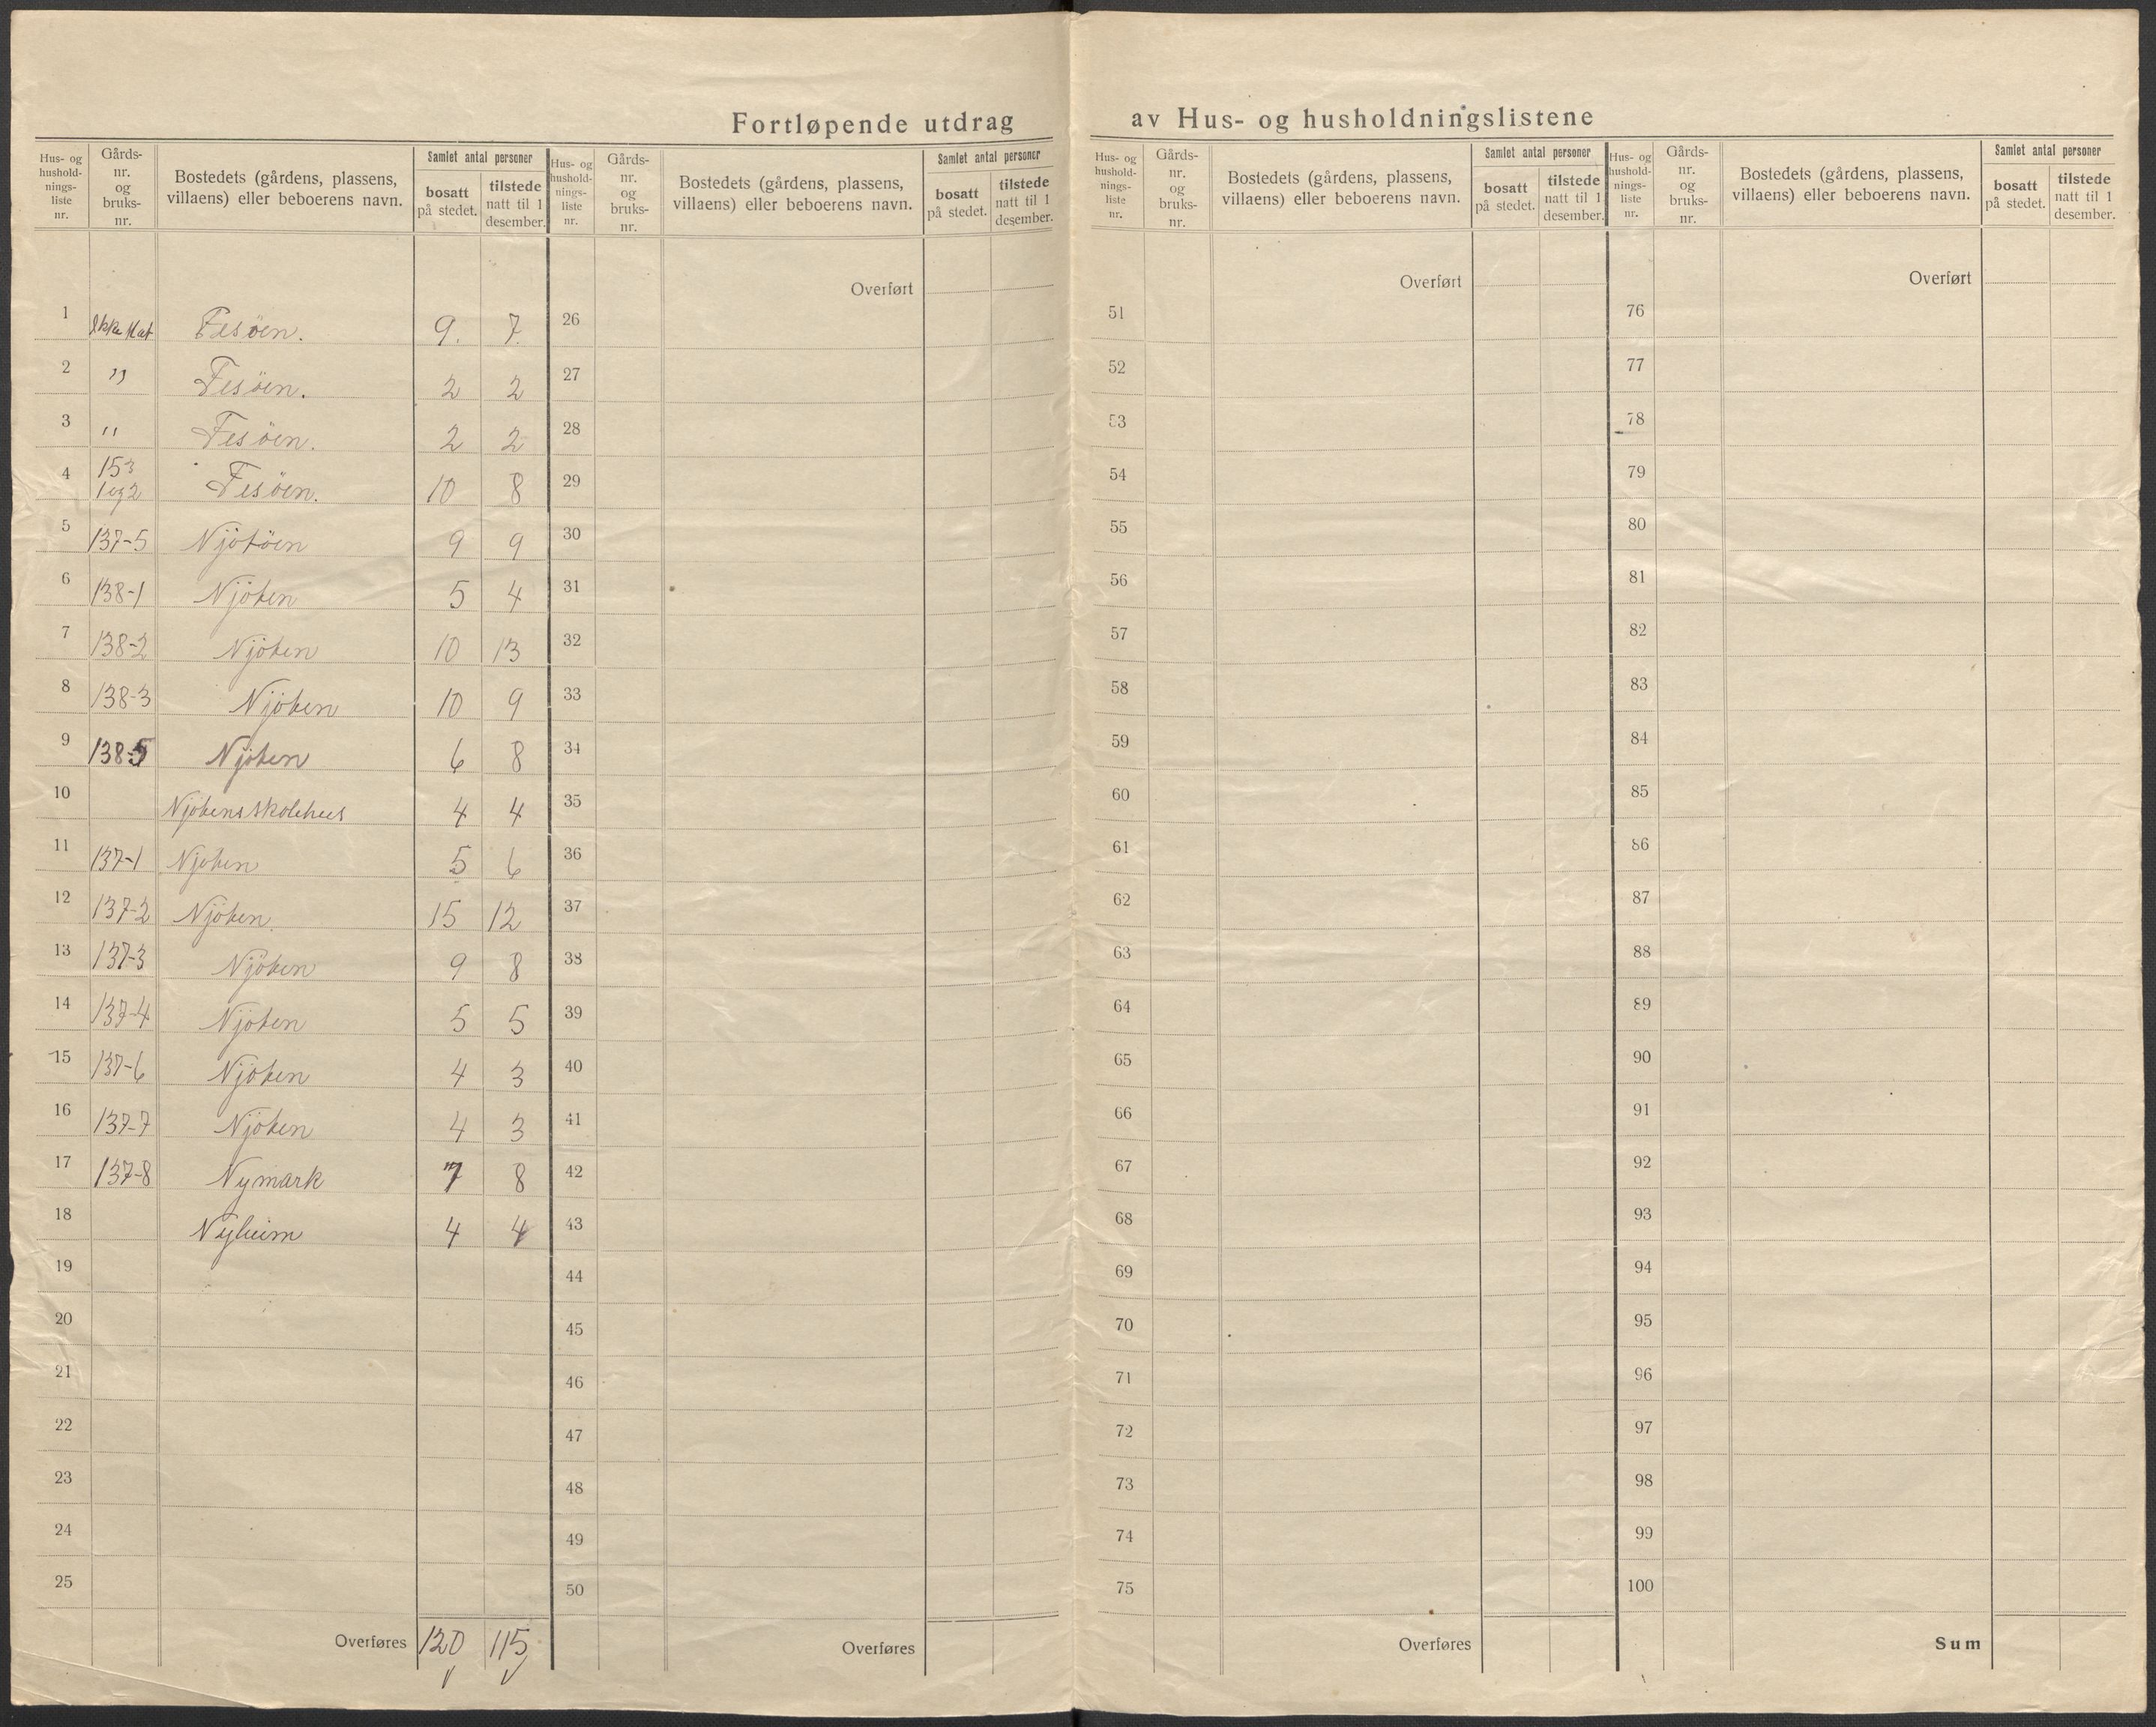 Fortløpende utdrag av Hus- og husholdningslistene
Hus- og hushold- nings- liste nr.
Gårds- nr. og bruks- nr.
Bostedets (gårdens, plassens, villaens) eller beboerens navn.
Samlet antal personer
bosatt på stedet.
tilstede natt til 1 desember.
Hus- og hushold- nings- liste nr.
Gårds- nr. og bruks- nr.
Bostedets (gårdens, plassens, villaens) eller beboerens navn.
Samlet antal personer
bosatt på stedet.
tilstede natt til 1 desember.
Hus- og hushold- nings- liste nr.
Gårds- nr. og bruks- nr.
Bostedets (gårdens, plassens, villaens) eller beboerens navn.
Samlet antal personer
bosatt på stedet.
tilstede natt til 1 desember.
Hus- og hushold- nings- liste nr.
Gårds- nr. og bruks- nr.
Bostedets (gårdens, plassens, villaens) eller beboerens navn.
Samlet antal personer
bosatt på stedet.
tilstede natt til 1 desember.
1 Ikke Mat Fesöen. 9. 7.
2 " Fesöen. 2 2
3 " Fesöen. 2 2
4 153 1og2 Fesöen. 10 8
5 137-5 Njötöen 9 9
6 138-1 Njöten 5 4
7 138-2 Njöten 10 13
8 138-3 Njöten 10 9
9 138-5 Njöten 6 8
10 Njötens skolehus 4 4
11 137-1 Njöten 5 6
12 137-2 Njöten. 15 12
13 137-3 Njöten 9 8
14 137-4 Njöten 5 5
15 137-6 Njöten 4 3
16 137-7 Njöten 4 3
17 137-8 Nymark 7 8
18 Nyheim 4 4
19
20
21
22
23
24
25
Overføres 120 115
Overført
26
27
28
29
30
31
32
33
34
35
36
37
38
39
40
41
42
43
44
45
46
47
48
49
50
Overføres
Overført
51
52
53
54
55
56
57
58
59
60
61
62
63
64
65
66
67
68
69
70
71
72
73
74
75
Overføres
Overført
76
77
78
79
80
81
82
83
84
85
86
87
88
89
90
91
92
93
94
95
96
97
98
99
100
Sum